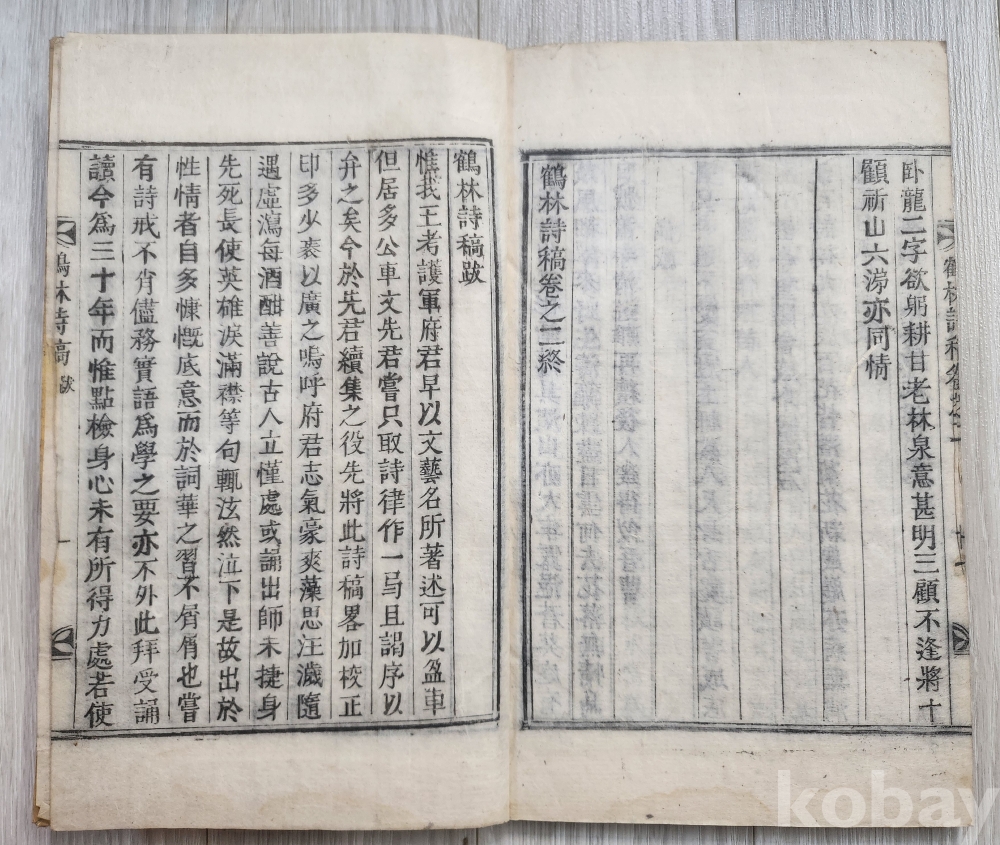 臥龍二字欲躬耕甘老林泉意甚明三顧不逢將十
顧祈山六涝亦同情
鶴林詩稿卷之二終
鶴林詩稿跋
惟我王考護軍府君早以文藝名所著述可以盈車
但居多公車文先君嘗只取詩律作一弓且謁序以
弁之矣今於先君續集之役先將此詩稿畧加校正
印多少袠以廣之嗚呼府君志氣豪爽藻思汪濊隨
遇虛瀉每酒酣善說古人立慬處或誦出師未捷身
先死長使英雄淚滿襟等句輒泫然泣下是故出於
性情者自多慷慨底意而於詞華之習不屑屑也嘗
有詩戒不肖儘務實語爲學之要亦不外此拜受誦
讀今爲三十年而惟點檢身心未有所得力處若使
鶴林詩稿 跋 一
kobay